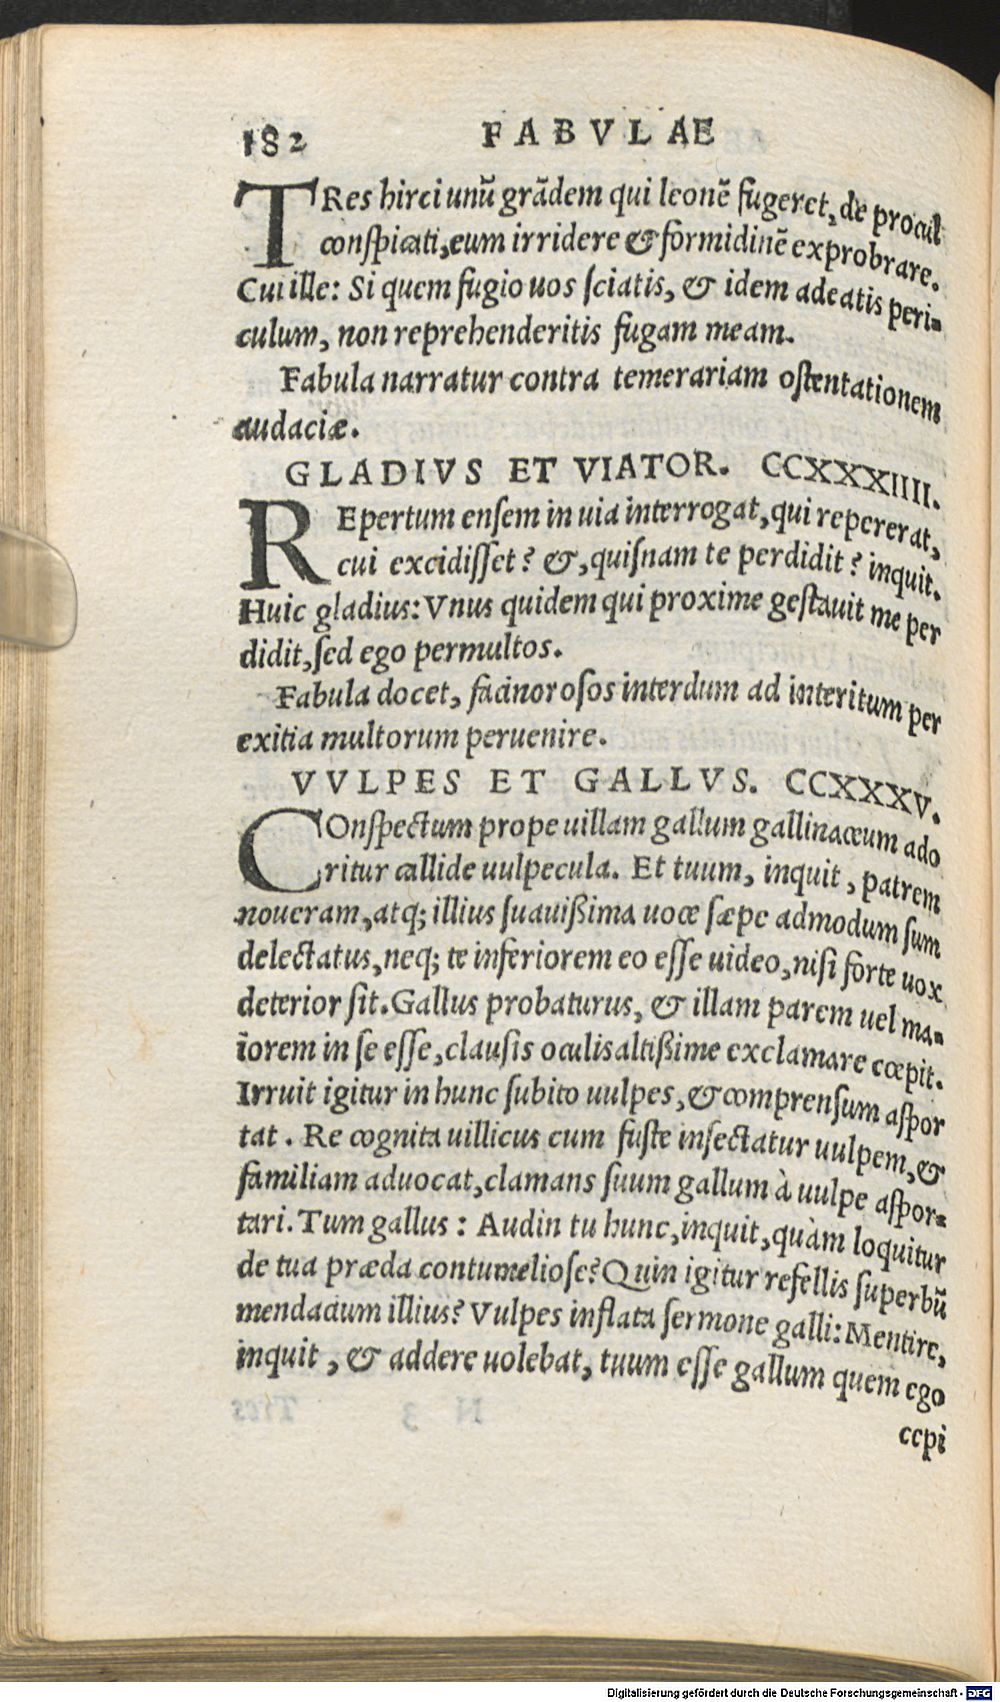 182 FABVLAE
TRes hirci unũ grãdem qui leonẽ fugeret, de procul
conspicati, eum irridere & formidinẽ exprobrare.
Cui ille: Si quem fugio uos sciatis, & idem adeatis peri-
culum, non reprehenderitis fugam meam.
Fabula narratur contra temerariam ostentationem
audaciæ.
GLADIVS ET VIATOR. CCXXXIIII.
REpertum ensem in uia interrogat, qui repererat,
cui excidisset? &, quisnam te perdidit? inquit.
Huic gladius: Vnus quidem qui proxime gestauit me per
didit, sed ego permultos.
Fabula docet, facinorosos interdum ad interitum per
exitia multorum peruenire.
VVLPES ET GALLVS. CCXXXV.
COnspectum prope uillam gallum gallinaceum ado
ritur callide uulpecula. Et tuum, inquit, patrem
noueram, atq; illius suauißima uoce sæpe admodum sum
delectatus, neq; te inferiorem eo esse uideo, nisi forte uox
deterior sit. Gallus probaturus, & illam parem uel ma-
iorem in se esse, clausis oculis altißime exclamare cœpit.
Irruit igitur in hunc subito uulpes, & comprensum aspor
tat. Re cognita uillicus cum fuste insectatur uulpem, &
familiam aduocat, clamans suum gallum à uulpe aspor-
tari. Tum gallus: Audin tu hunc, inquit, quàm loquitur
de tua præda contumeliose? Quin igitur refellis superbũ
mendacium illius? Vulpes inflata sermone galli: Mentire,
inquit, & addere uolebat, tuum esse gallum quem ego
cepi
Digitalisierung gefördert durch die Deutsche Forschungsgemeinschaft - DFG